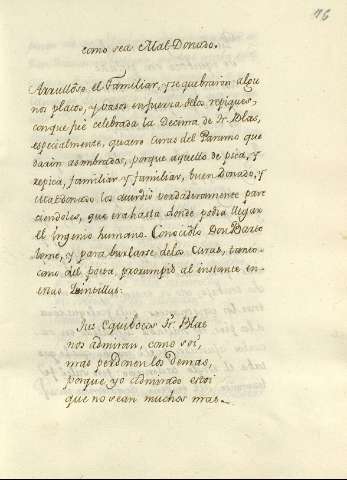 76
como sea Mal-Donado.
el Familiar, y requebraron algu
nos platos, y vasos en fuerza delos repiques,
conque fue celebrada la Decima de Fr. Blas,
especialmente, quatro Curas del Paramo que
daron asombrados, porque aquello de pica, y
repica, familiar y familiar, buen Donado, y
Maldonado los aturdiò verdaderamente pare
ciendoles, que era hasta donde podia llegar
el Ingenio humano. Conociòlo Don Barto
lome, y para burlarse delos Curas, tanto
como del poeta, prorumpiò al instante en
estas Quintillas:
Sus Equibocos Fr. Blas
nos admiran, como soi,
mas perdonen los demas,
porque yo admirado estoi
que no sean muchos mas.